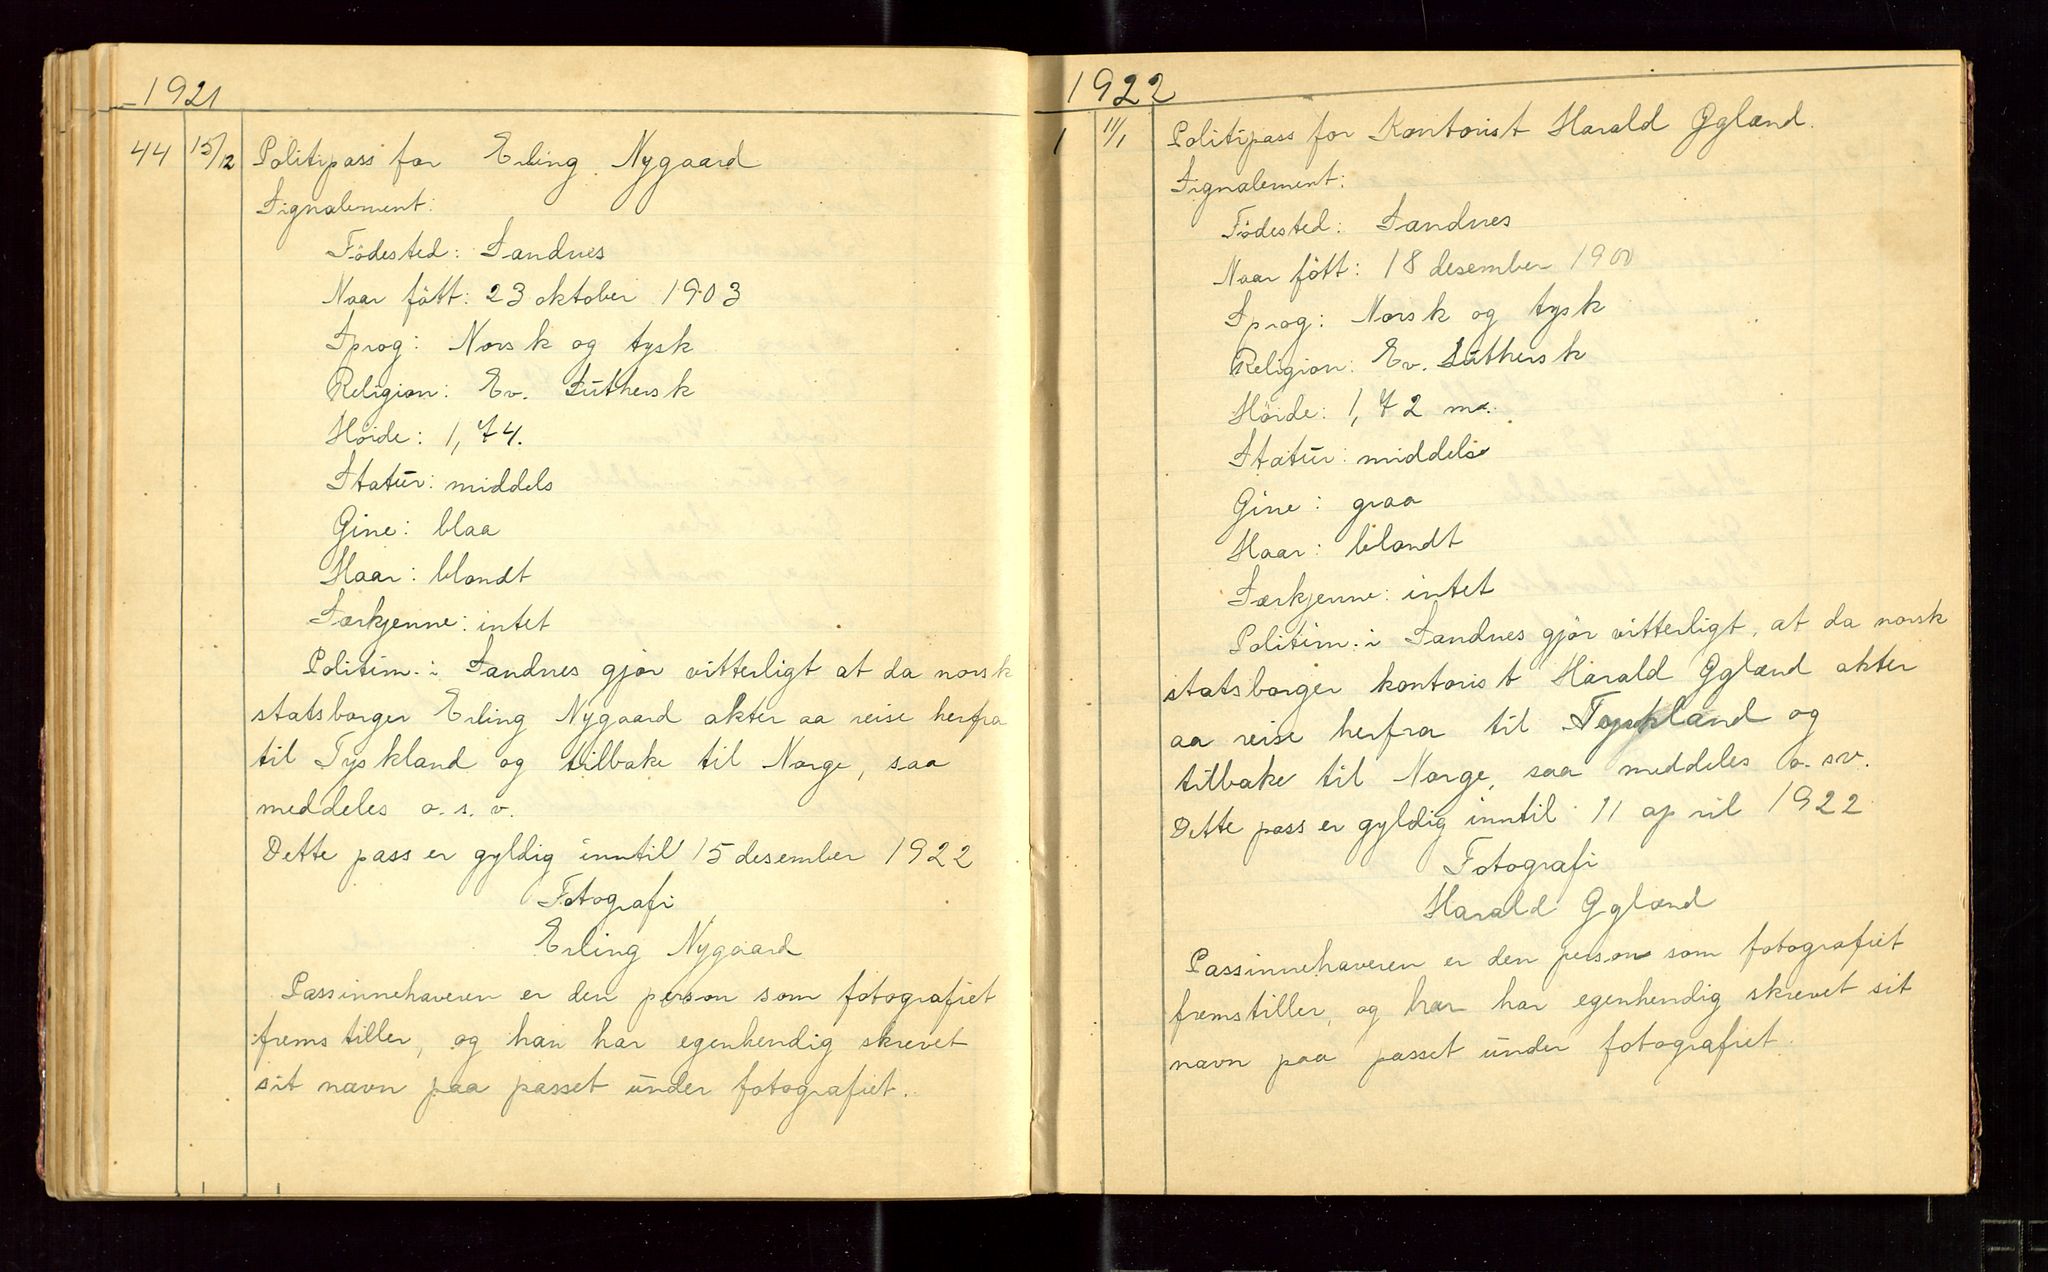 1921
44 15/12 Politipass for Erling Nygaard
Signalement:
Födested: Sandnes
Naar fött: 23 oktober 1903
Sprog: Norsk og tysk
Religion: Ev. Luthersk
Höide: 1,74.
Statur: middels
Öine: blaa
Haar: blondt
Særkjenne: intet
Politim. i Sandnes gjör vitterligt at da norsk
statsborger Erling Nygaard akter aa reise herfra
til Tyskland og tilbake til Norge, saa
meddeles o. s. v.
Dette pass er gyldig inntil 15 desember 1922
Fotografi
Erling Nygaard
Passinnehaveren er den person som fotografiet
fremstiller, og han har egenhendig skrevet
sit navn paa passet under fotografiet.
1922
1 11/1 Politipass for Kontorist Harald Ogland.
Signalement:
Födested: Sandnes
Naar fött: 18 desember 1900
Sprog: Norsk og tysk
Religion: Ev. Luthersk
Höide: 1,72 m.
Statur: middels
Öine: graa
Haar: blondt
Særkjenne: intet
Politim. i Sandnes gjör vitterligt, at da norsk
statsborger kontorist Harald Ogland akter
aa reise herfra til Tyskland og
tilbake til Norge, saa meddeles o. sv.
Dette pass er gyldig inntil 11 april 1922
Fotografi
Harald Ogland
Passinnehaveren er den person som fotografiet
fremstiller, og han har egenhendig skrevet sit
navn paa passet under fotografiet.